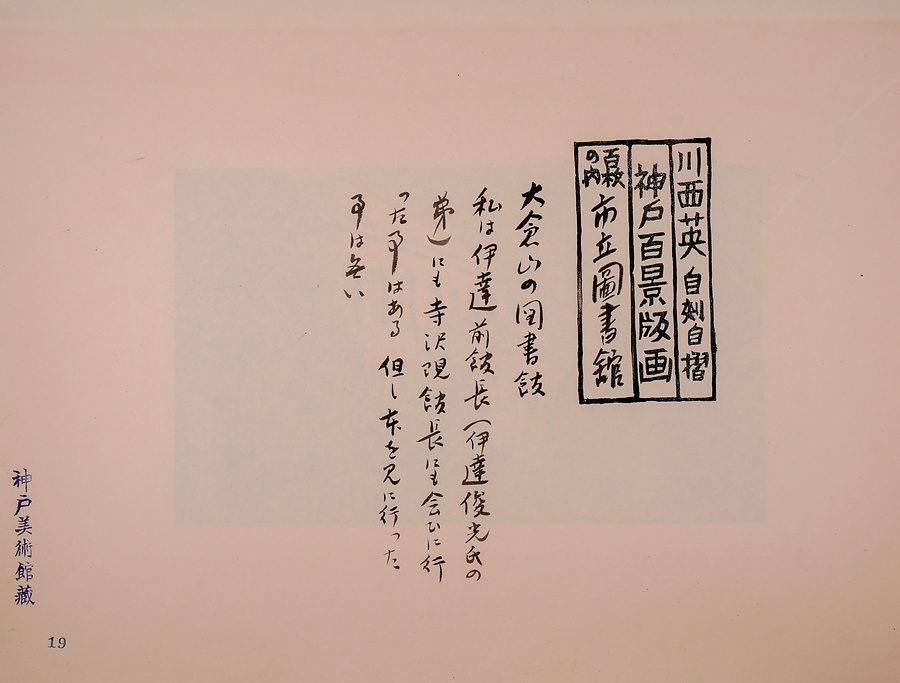 川西英 自刻自摺
神戸百景版画
百枚の内 市立圖書館
大倉山の図書館
私は伊達前館長(伊達俊光氏の
弟)にも寺沢現館長にも会ひに行
った事はある 但し本を見に行った
事は無い
神戸美術館藏
19